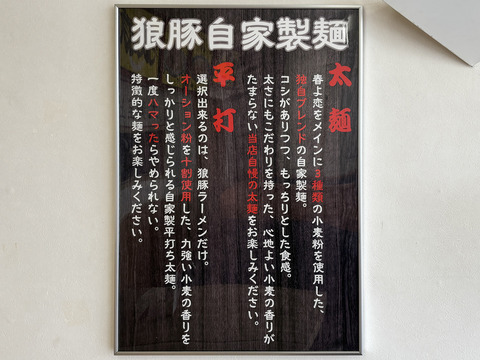 狼豚自家製麺
太麺
春よ恋をメインに3種類の小麦粉を使用した、
独自ブレンドの自家製麺。
コシがありつつ、もっちりとした食感。
太さにもこだわりを持った、心地よい小麦の香りが
たまらない当店自慢の太麺をお楽しみください。
平打
選択出来るのは、狼豚ラーメンだけ。
オーション粉を十割使用した、力強い小麦の香りを
しっかりと感じられる自家製平打ち太麺。
一度ハマったらやめられない。
特徴的な麺をお楽しみください。